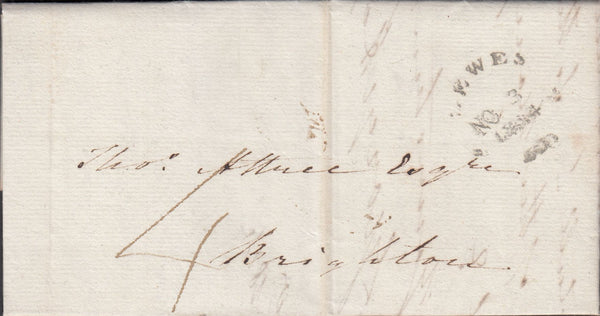 LEWES
NO 3
Thos. Attree Esqre
4
Brighton